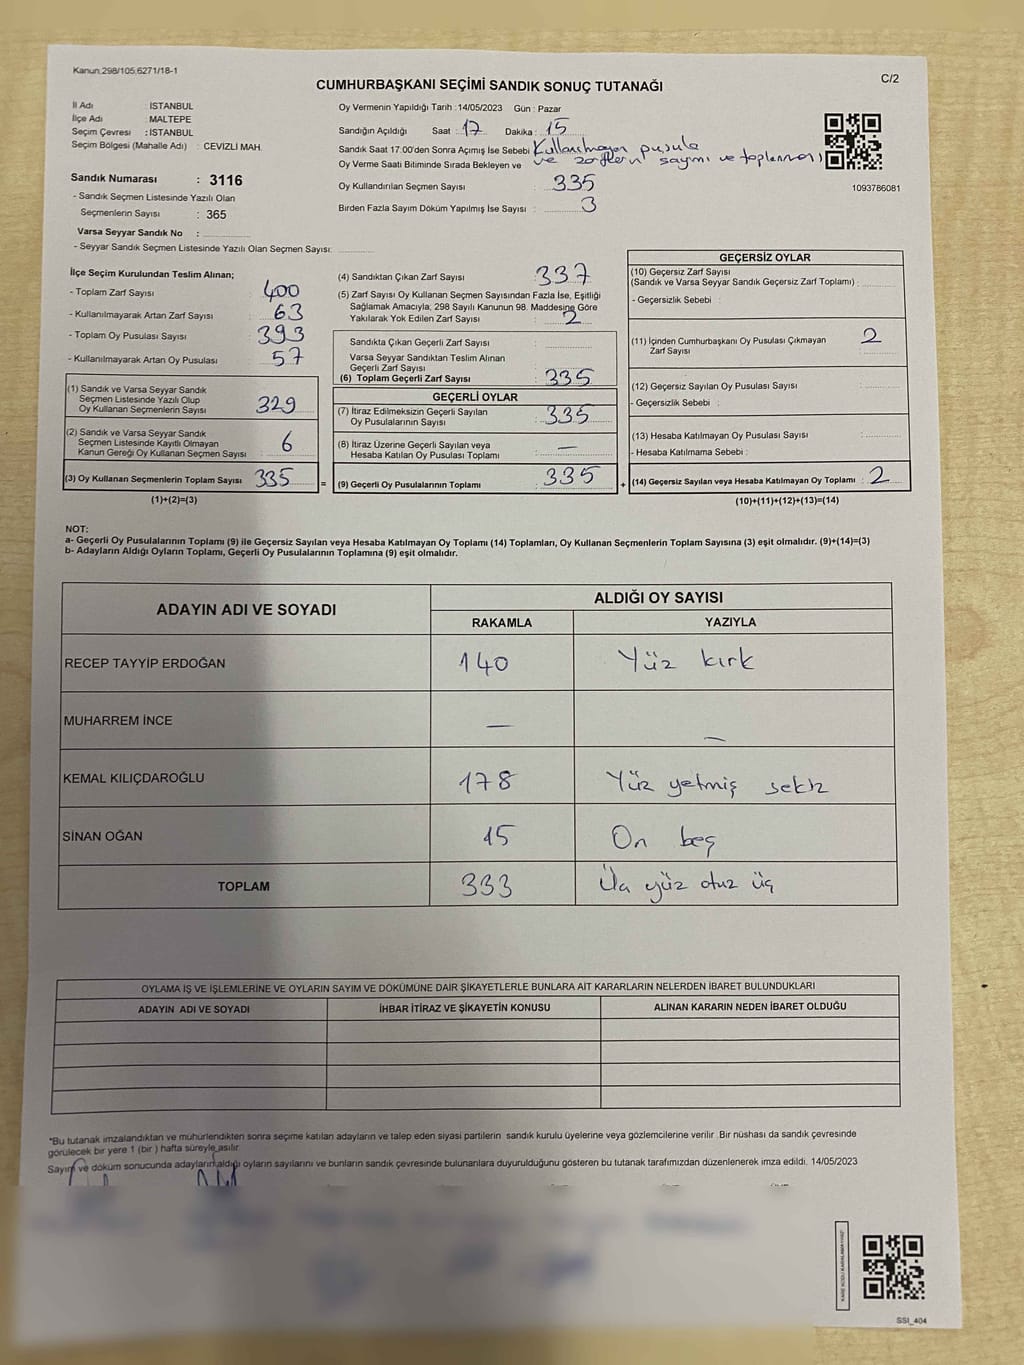 Kanun:298/105,6271/18-1
C/2
CUMHURBAŞKANI SEÇİMİ SANDIK SONUÇ TUTANAĞI
İl Adı : İSTANBUL
İlçe Adı : MALTEPE
Seçim Çevresi : İSTANBUL
Seçim Bölgesi (Mahalle Adı) : CEVİZLİ MAH.
Sandık Numarası : 3116
- Sandık Seçmen Listesinde Yazılı Olan
Seçmenlerin Sayısı : 365
Varsa Seyyar Sandık No :
- Seyyar Sandık Seçmen Listesinde Yazılı Olan Seçmen Sayısı:
Oy Vermenin Yapıldığı Tarih :14/05/2023 Gün : Pazar
Sandığın Açıldığı Saat : 17 Dakika : 15
Sandık Saat 17:00'den Sonra Açımış İse Sebebi Kullanılmayan pusula
Oy Verme Saati Bitiminde Sırada Bekleyen ve ve zarfların sayımı ve toplanması
Oy Kullandırılan Seçmen Sayısı : 335
Birden Fazla Sayım Döküm Yapılmış İse Sayısı : 3
1093786081
İlçe Seçim Kurulundan Teslim Alınan;
- Toplam Zarf Sayısı : 400
- Kullanılmayarak Artan Zarf Sayısı : 63
- Toplam Oy Pusulası Sayısı : 393
- Kullanılmayarak Artan Oy Pusulası : 57
(1) Sandık ve Varsa Seyyar Sandık
Seçmen Listesinde Yazılı Olup
Oy Kullanan Seçmenlerin Sayısı : 329
(2) Sandık ve Varsa Seyyar Sandık
Seçmen Listesinde Kayıtlı Olmayan
Kanun Gereği Oy Kullanan Seçmen Sayısı : 6
(3) Oy Kullanan Seçmenlerin Toplam Sayısı : 335
(1)+(2)=(3)
=
(4) Sandıktan Çıkan Zarf Sayısı : 337
(5) Zarf Sayısı Oy Kullanan Seçmen Sayısından Fazla İse, Eşitliği
Sağlamak Amacıyla; 298 Sayılı Kanunun 98. Maddesine Göre
Yakılarak Yok Edilen Zarf Sayısı : 2
Sandıkta Çıkan Geçerli Zarf Sayısı :
Varsa Seyyar Sandıktan Teslim Alınan
Geçerli Zarf Sayısı :
(6) Toplam Geçerli Zarf Sayısı : 335
GEÇERLİ OYLAR
(7) İtiraz Edilmeksizin Geçerli Sayılan
Oy Pusulalarının Sayısı : 335
(8) İtiraz Üzerine Geçerli Sayılan veya
Hesaba Katılan Oy Pusulası Toplamı : —
(9) Geçerli Oy Pusulalarının Toplamı : 335
+
GEÇERSİZ OYLAR
(10) Geçersiz Zarf Sayısı
(Sandık ve Varsa Seyyar Sandık Geçersiz Zarf Toplamı) :
- Geçersizlik Sebebi :
(11) İçinden Cumhurbaşkanı Oy Pusulası Çıkmayan
Zarf Sayısı : 2
(12) Geçersiz Sayılan Oy Pusulası Sayısı :
- Geçersizlik Sebebi :
(13) Hesaba Katılmayan Oy Pusulası Sayısı :
- Hesaba Katılmama Sebebi :
(14) Geçersiz Sayılan veya Hesaba Katılmayan Oy Toplamı : 2
(10)+(11)+(12)+(13)=(14)
NOT:
a- Geçerli Oy Pusulalarının Toplamı (9) ile Geçersiz Sayılan veya Hesaba Katılmayan Oy Toplamı (14) Toplamları, Oy Kullanan Seçmenlerin Toplam Sayısına (3) eşit olmalıdır. (9)+(14)=(3)
b- Adayların Aldığı Oyların Toplamı, Geçerli Oy Pusulalarının Toplamına (9) eşit olmalıdır.
ADAYIN ADI VE SOYADI
ALDIĞI OY SAYISI
RAKAMLA YAZIYLA
RECEP TAYYİP ERDOĞAN 140 Yüz kırk
MUHARREM İNCE — —
KEMAL KILIÇDAROĞLU 178 Yüz yetmiş sekiz
SİNAN OĞAN 15 On beş
TOPLAM 333 Üç yüz otuz üç
OYLAMA İŞ VE İŞLEMLERİNE VE OYLARIN SAYIM VE DÖKÜMÜNE DAİR ŞİKAYETLERLE BUNLARA AİT KARARLARIN NELERDEN İBARET BULUNDUKLARI
ADAYIN ADI VE SOYADI İHBAR İTİRAZ VE ŞİKAYETİN KONUSU ALINAN KARARIN NEDEN İBARET OLDUĞU
*Bu tutanak imzalandıktan ve mühürlendikten sonra seçime katılan adayların ve talep eden siyasi partilerin sandık kurulu üyelerine veya gözlemcilerine verilir .Bir nüshası da sandık çevresinde
görülecek bir yere 1 (bir ) hafta süreyle asılır
Sayım ve döküm sonucunda adayların aldığı oyların sayılarını ve bunların sandık çevresinde bulunanlara duyurulduğunu gösteren bu tutanak tarafımızdan düzenlenerek imza edildi. 14/05/2023
SSİ_404